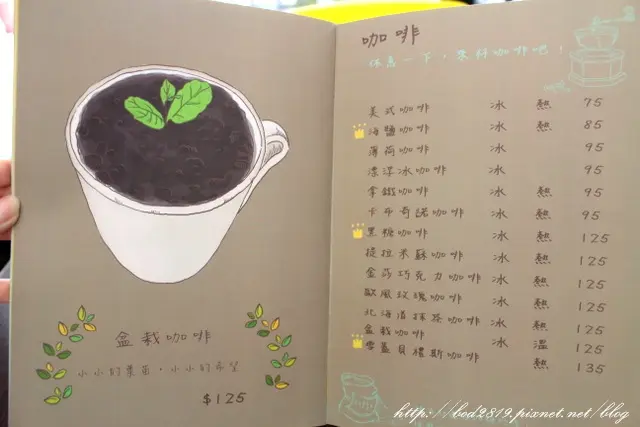 盆栽咖啡
小小的葉苗，小小的希望
$125
咖啡
休息一下，來杯咖啡吧！
美式咖啡 冰 熱 75
海鹽咖啡 冰 熱 85
薄荷咖啡 冰 95
漂浮冰咖啡 冰 95
拿鐵咖啡 冰 熱 95
卡布奇諾咖啡 冰 熱 95
黑糖咖啡 冰 熱 125
提拉米蘇咖啡 冰 熱 125
金莎巧克力咖啡 冰 熱 125
歐風玫瑰咖啡 冰 熱 125
北海道抹茶咖啡 冰 熱 125
盆栽咖啡 冰 溫 125
雪蓋貝禮斯咖啡 熱 135
http://bed2819.pixnet.net/blog